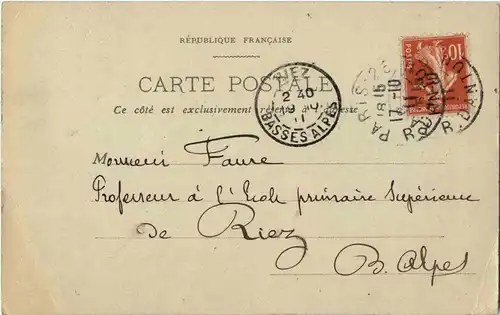 RÉPUBLIQUE FRANÇAISE
CARTE POSTALE
Ce côté est exclusivement réservé à l'adresse
RIEZ
2 40
BASSES-ALPES
PARIS
18 15
17 -10
11
R. D
10
POSTES
Monsieur Faure
Professeur à l'Ecole primaire Supérieure
de Riez
B. Alpes